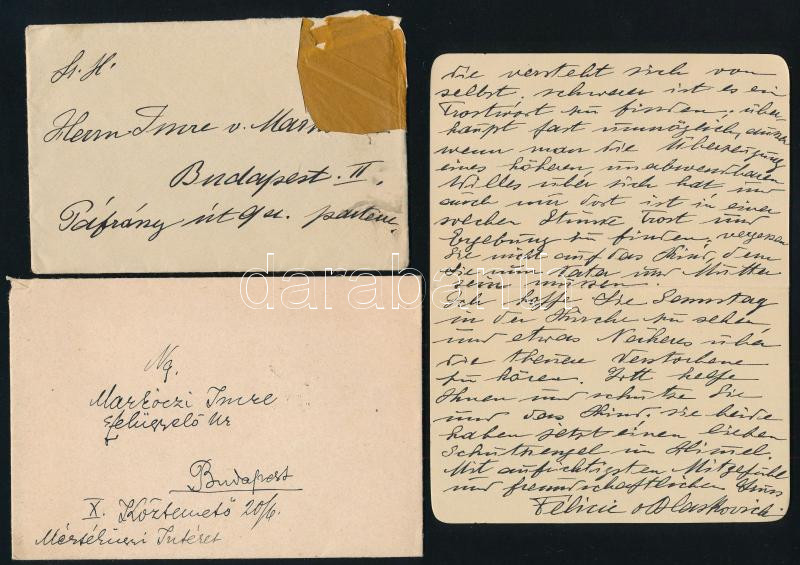 Sr. H.
Herrn Imre v. Mar
Budapest. II.
Páfrány út 9a. parterre.
Ng.
Markóczi Imre
felügyelő Úr
Budapest
X. Köztemető 20/6.
Mértékügyi Intézet
die versteht sich von
selbst, schwerer ist es ein
Trostwort zu finden, über-
haupt fast unmöglich, ausser
wenn man die Überzeugung
eines höheren, unabwendbaren
Willes über sich hat und
auch nur dort ist in einer
solchen Stunde Trost und
Ergebung zu finden, vergessen
Sie nicht auf das Kind, dem
Sie nun Vater und Mutter
sein müssen.
Ich hoffe Sie Samstag
in der Kirche zu sehen
und etwas Näheres über
die theuere Verstorbene
zu hören. Gott helfe
Ihnen und schütze Sie
und das Kind, sie beide
haben jetzt einen lieben
Schutzengel im Himel.
Mit aufrichtigsten Mitgefühl
und freundschaftlichen Gruss
Félicie v Blaskovich.
darabanth